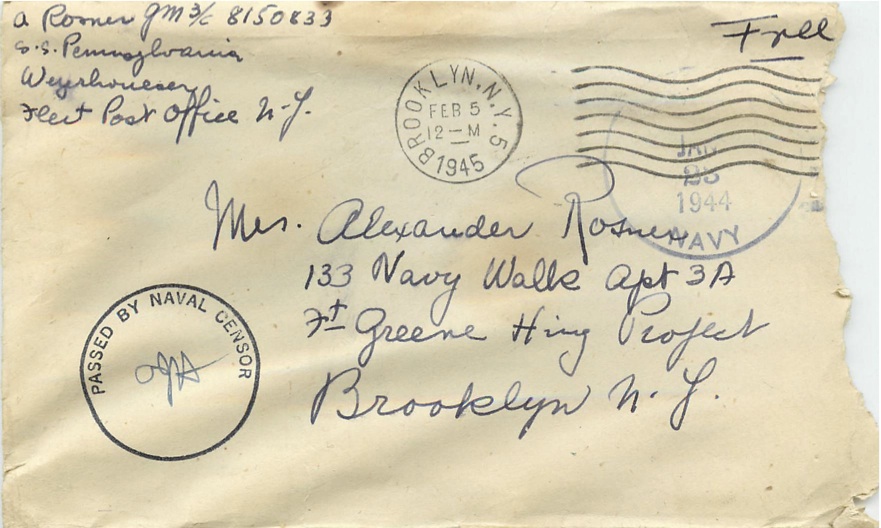 A Rosner GM 3/c 8150833
S.S. Pennsylvania
Weyrhoueser
Fleet Post Office N.Y.
Free
BROOKLYN, N.Y. 5
FEB 5
12-M
1945
JAN
23
1944
NAVY
Mrs. Alexander Rosner
133 Navy Walk Apt 3A
Ft Greene Hsng Project
Brooklyn N.Y.
PASSED BY NAVAL CENSOR